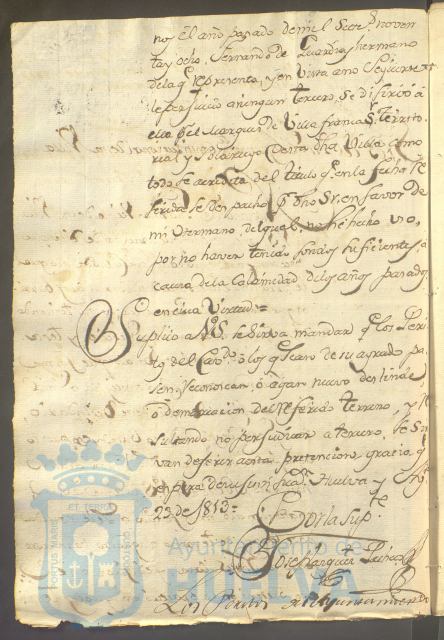 no; el año pasado de mil Setes. noven
ta y ocho, Fernando de Guardia y hermano
de la q.e representa, y en Vista a no Seguirse
le perjuicio a ningun tercero, Se difirió á
ella p.r el Marques de Villa franca S.r Territo
rial y Solariego de esta dha Villa como
todo se acredita del titulo q.e en la fecha re
ferida se Despachó p.r dho Sr. en favor de
mi Hermano, del qual no he hecho uso,
por no haver tenido fondos suficientes, a
causa de la Calamidad de los años pasados
en esta Virtud=
Suplico a VSS. se sirva mandar q.e los Peri
tos del Cavdo. ó los q.e sean de su agrado pa
sen, reconoscan, ó agan nuevo deslinde
ó demarcacion del referido terreno, y re
sultando no perjudicar a tercero, se Sir
van deferir a esta pretencion: gracia q.e
espera de su justificad.n Huelva y
23 de 1813=
Por la sup.te
Jose Marquez
Ayuntamiento
Ayuntamiento de
HUELVA
PORTUS MARIS
ET TERRE
CUSTODIA